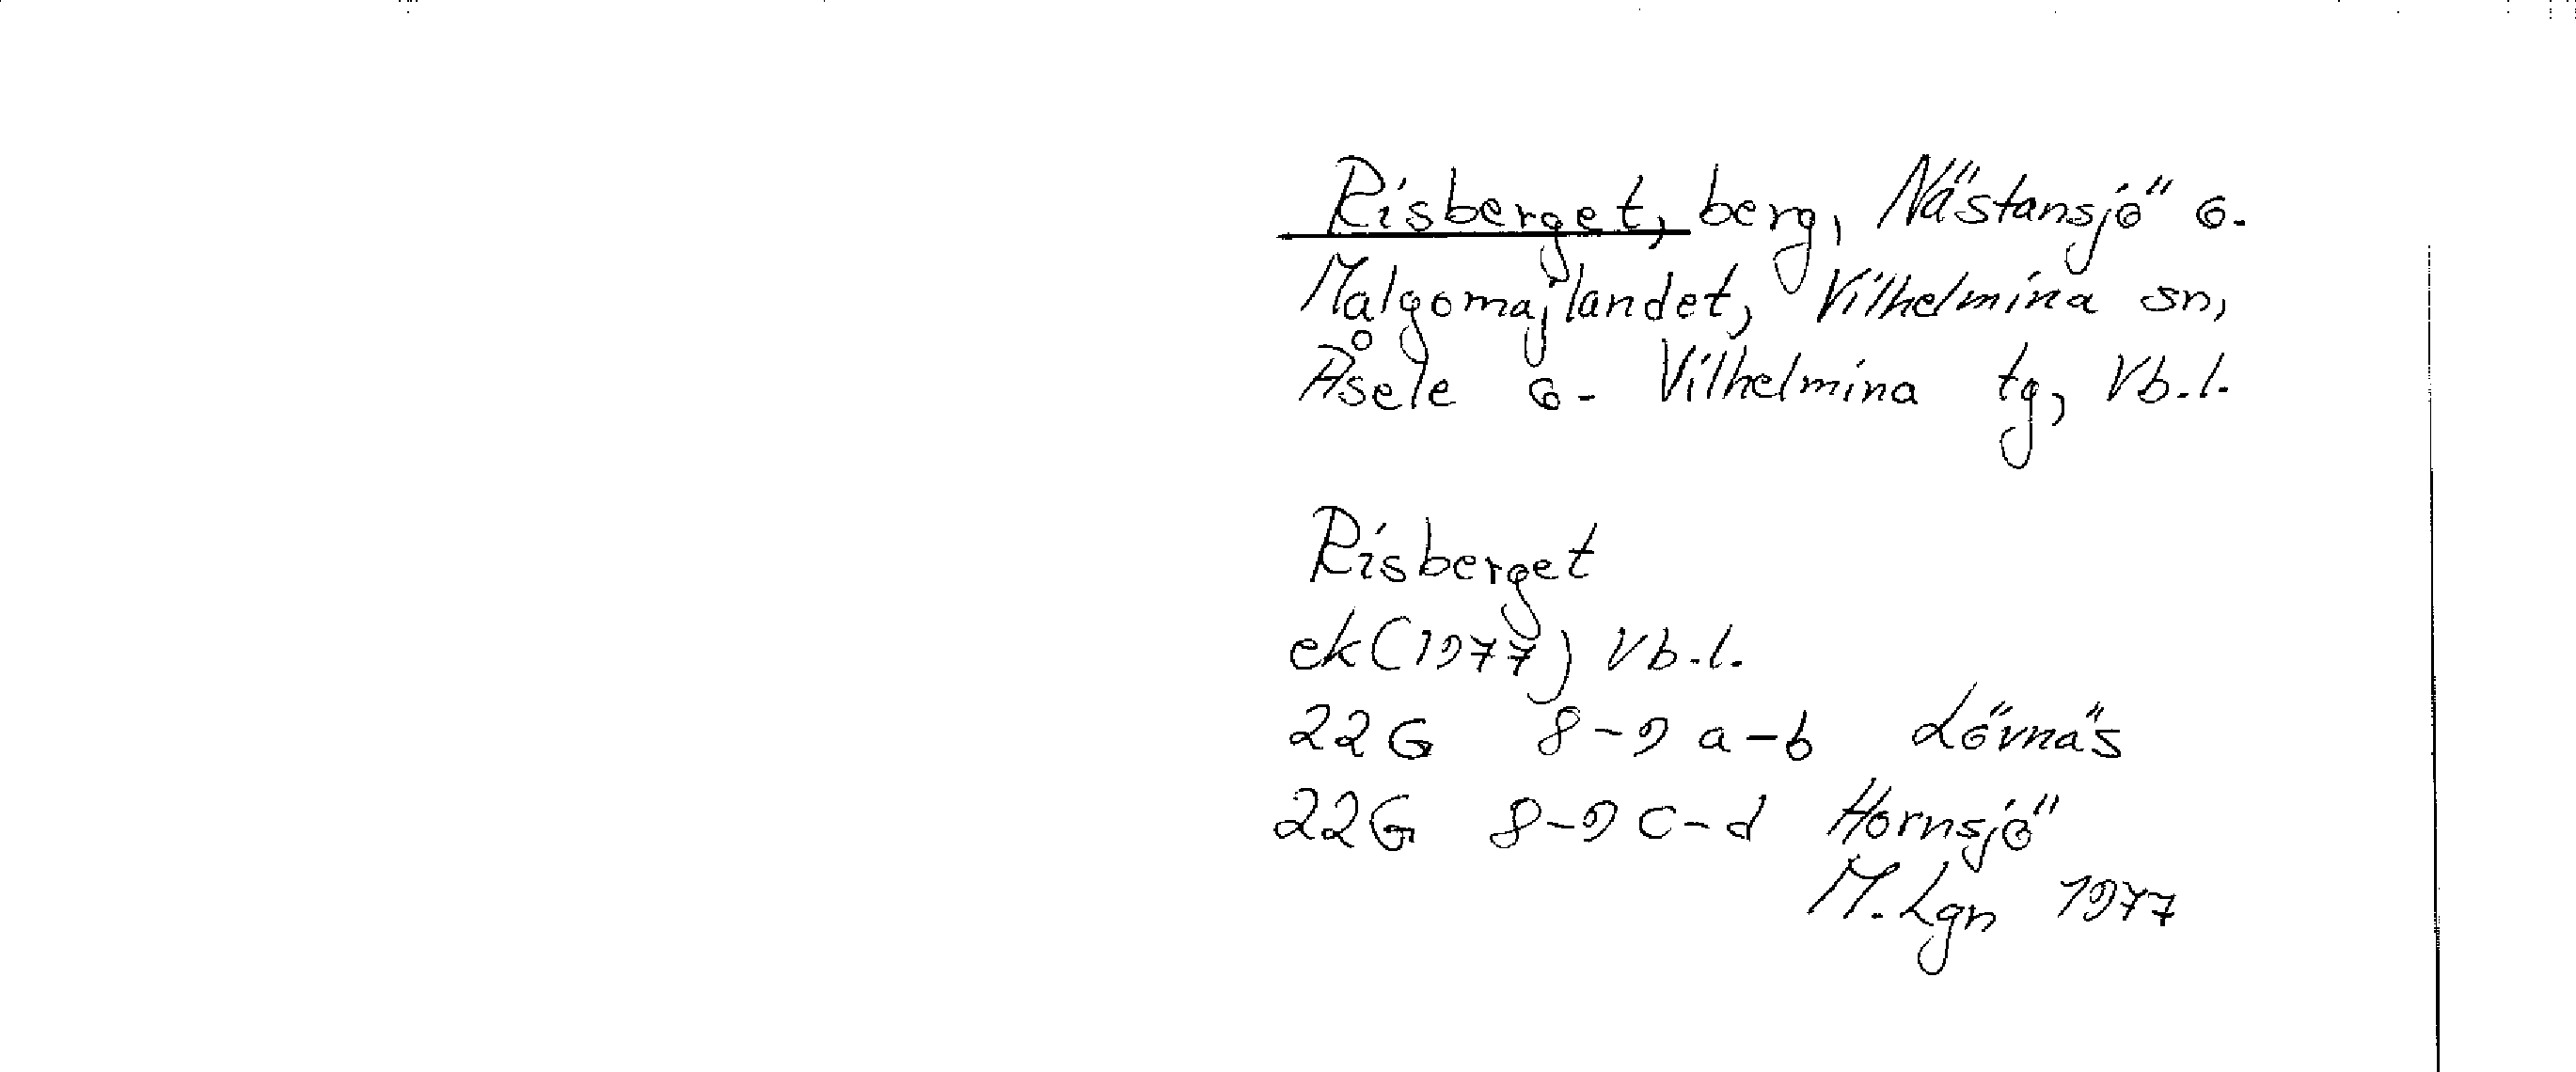 Risberget, berg, Nästansjö o.
Malgomajlandet, Vilhelmina sn,
Åsele o. Vilhelmina tg, Vb.l.
Risberget
ek (1977) Vb.l.
22G 8-9 a-b Lövnäs
22G 8-9 c-d Hornsjö
M. Lgn 1977